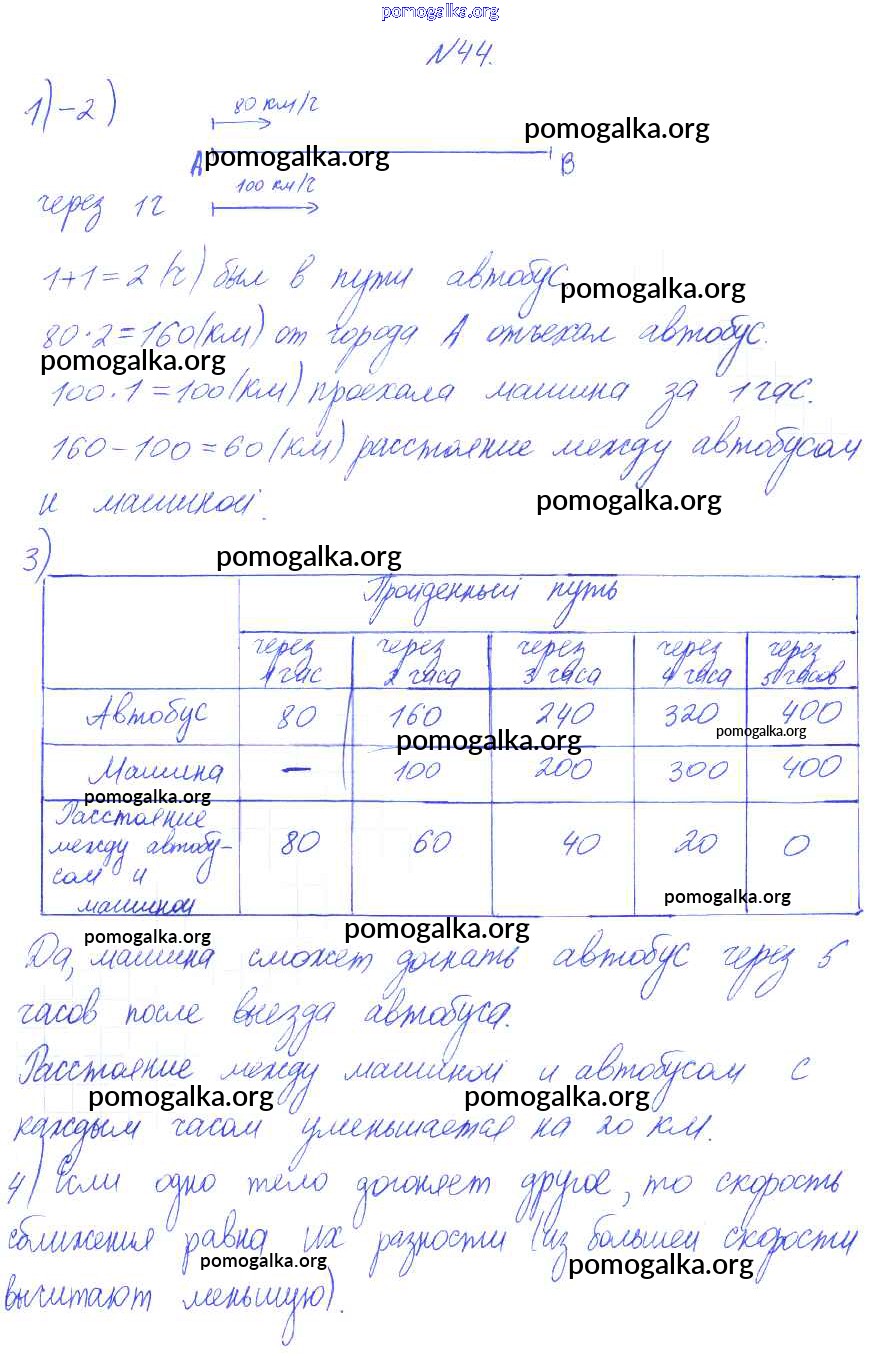 pomogalka.org
№44.
1)-2)
80 км/ч
pomogalka.org
А pomogalka.org В
100 км/ч
через 1ч
1+1=2 (ч) был в пути автобус.
pomogalka.org
80·2=160(км) от города А отъехал автобус.
pomogalka.org
100·1=100(км) проехала машина за 1 час.
160-100=60(км) расстояние между автобусом
и машиной.
pomogalka.org
3)
pomogalka.org
Пройденный путь
через 1 час через 2 часа через 3 часа через 4 часа через 5 часов
Автобус 80 160 240 320 400
pomogalka.org
pomogalka.org
Машина – 100 200 300 400
pomogalka.org
Расстояние
между автобу-
сом и
машиной
80 60 40 20 0
pomogalka.org
pomogalka.org
pomogalka.org
Да, машина сможет догнать автобус через 5
часов после выезда автобуса.
Расстояние между машиной и автобусом с
pomogalka.org pomogalka.org
каждым часом уменьшается на 20 км.
4) Если одно тело догоняет другое, то скорость
сближения равна их разности (из большей скорости
pomogalka.org pomogalka.org
вычитают меньшую).